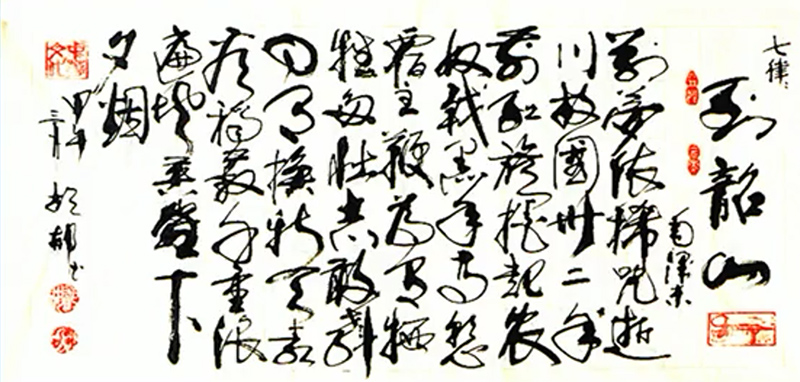 七律：
到韶山
毛泽东
别梦依稀咒逝
川故園卅二年
前红旗捲起農
奴戟黑手高悬
霸主鞭为有牺
牲多壮志敢教
日月換新天喜
看稻菽千重浪
遍地英雄下
夕烟
甲午
三月
书